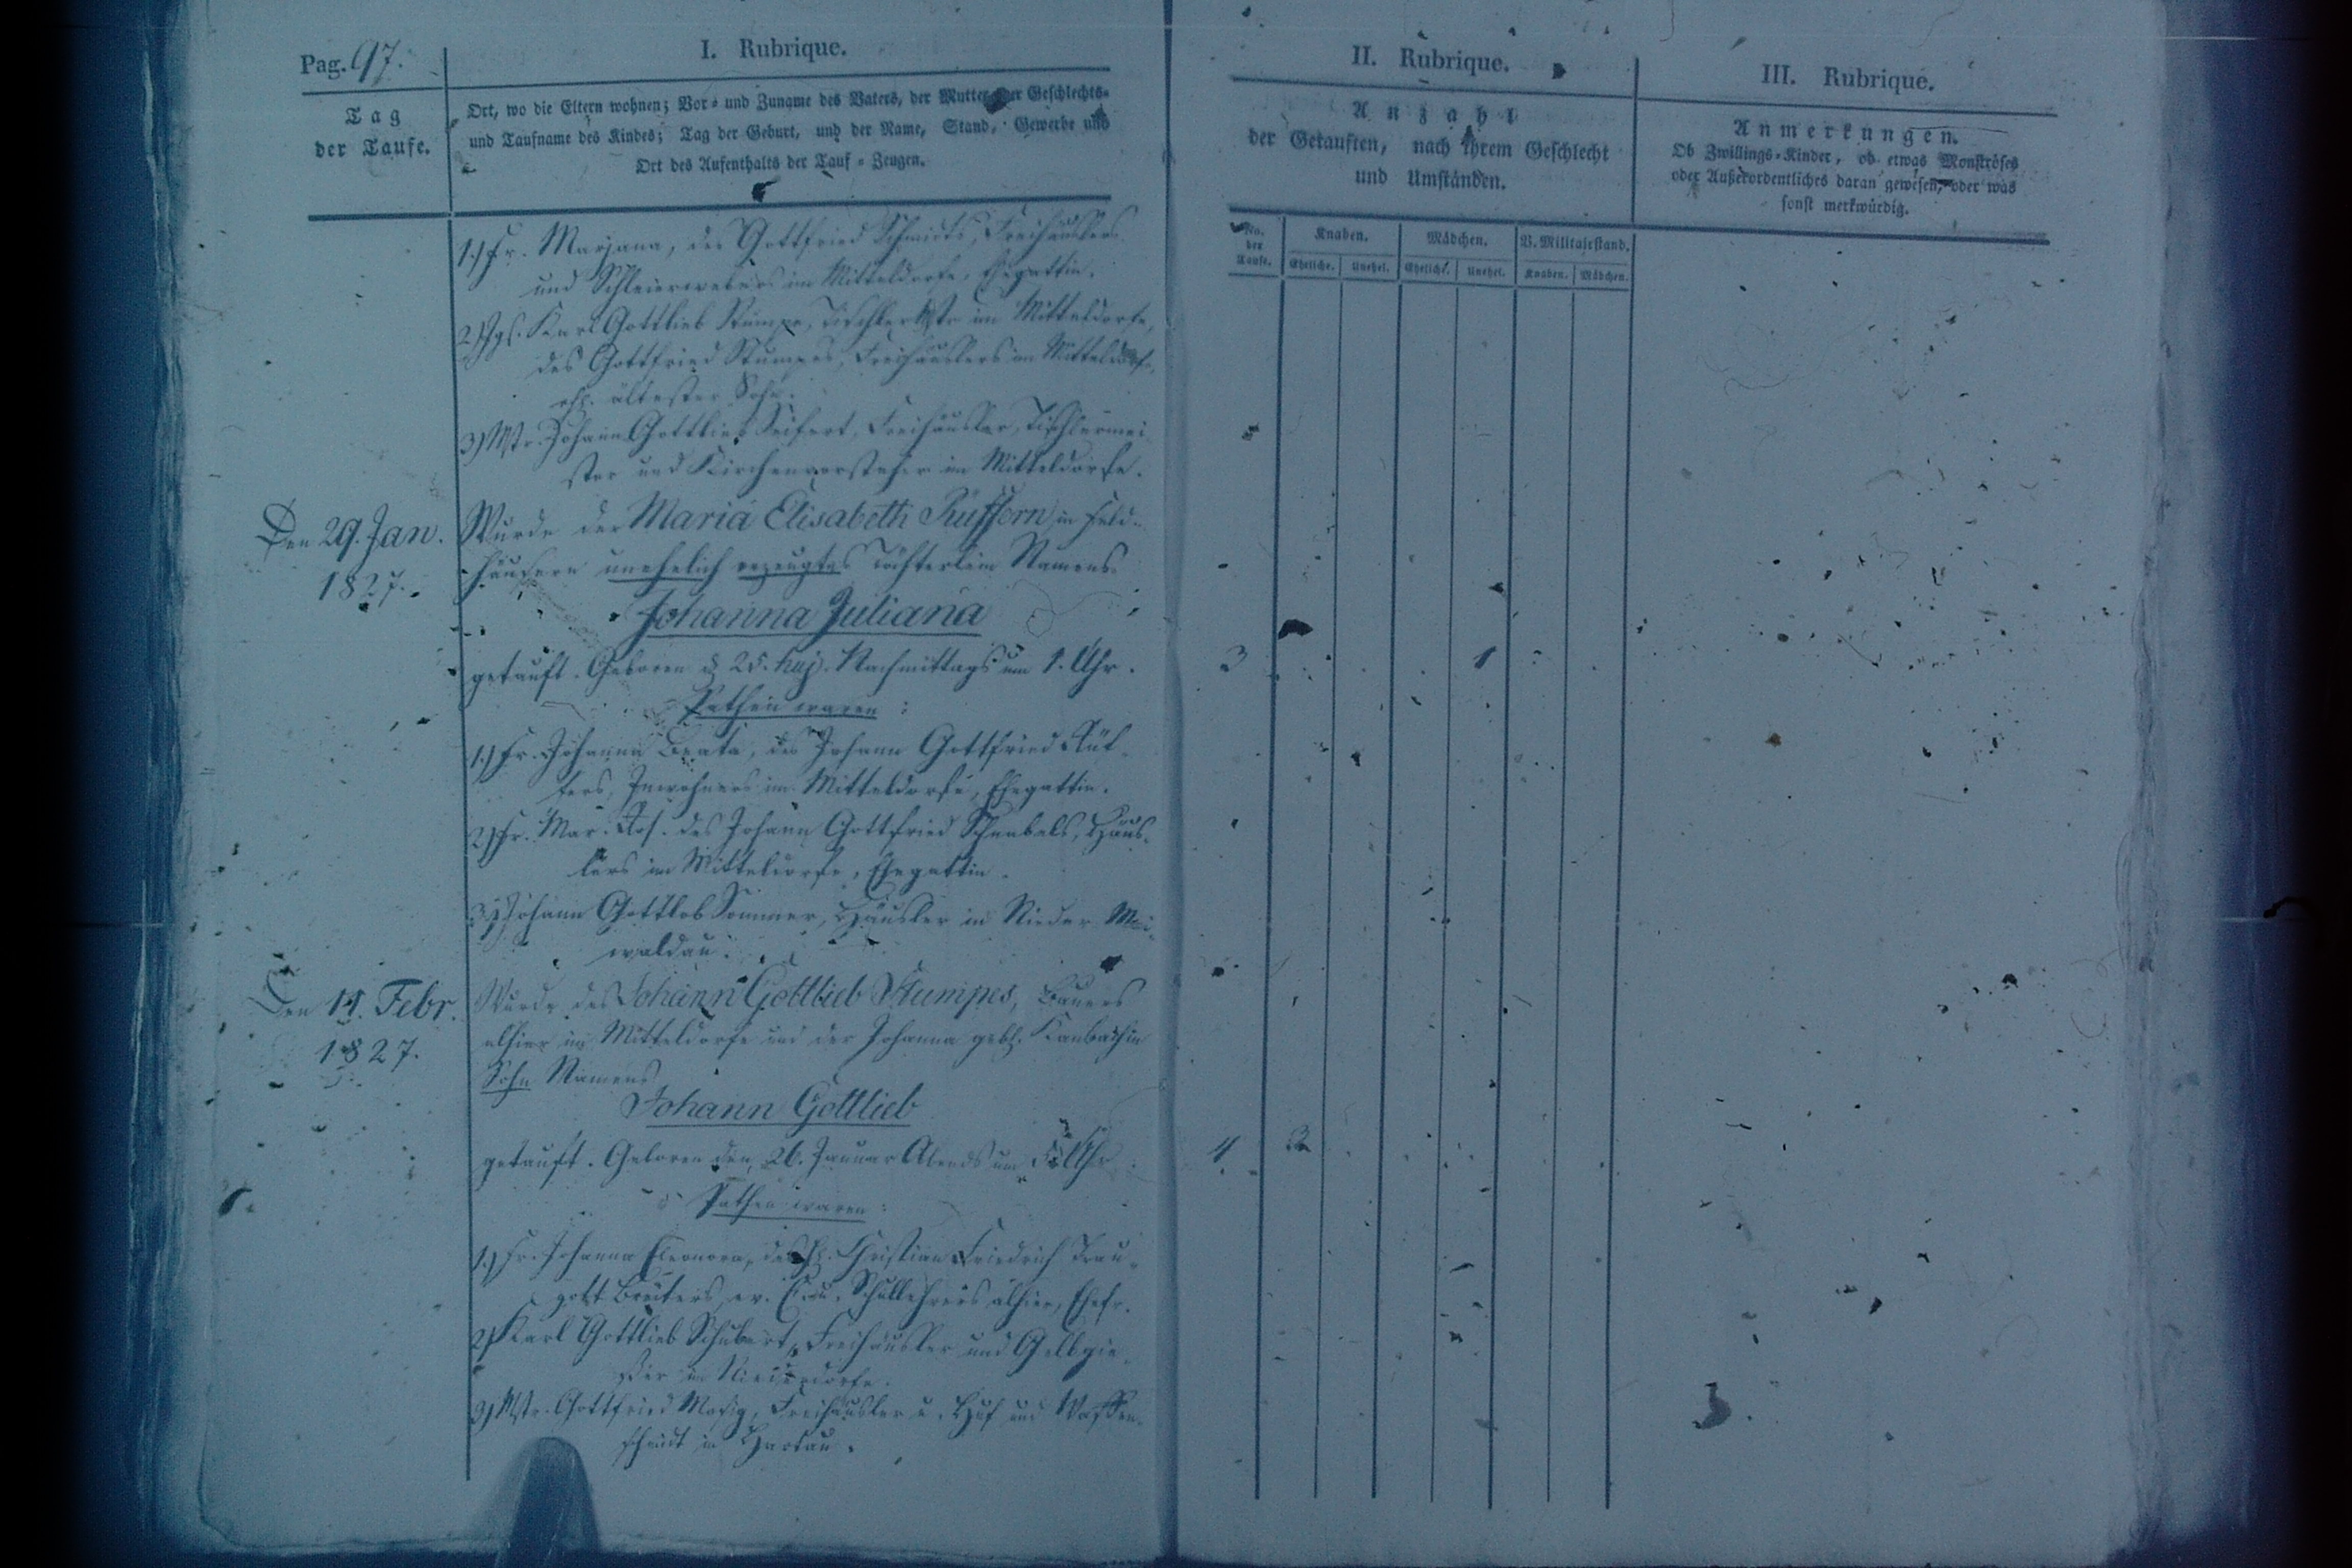 Pag. 97.
I. Rubrique.
Tag
der Taufe.
Ort, wo die Eltern wohnen; Vor- und Zuname des Vaters, der Mutter, der Geschlechts-
und Taufname des Kindes; Tag der Geburt, und der Name, Stand, Gewerbe und
Ort des Aufenthalts der Tauf-Zeugen.
1.) Fr. Marjana, des Gottfried Schmidts, Freihäuslers
und Schleierwebers im Mitteldorfe, Ehegattin.
2) Jgs. Karl Gottlieb Stumpe, Tischler Mstr. im Mitteldorfe,
des Gottfried Stumpes, Freihäuslers im Mitteldorfe,
ältester Sohn.
3) Mstr. Johann Gottlieb Seifert, Freihäusler, Tischlermei-
ster und Kirchenvorsteher im Mitteldorfe.
Den 29. Jan.
1827.
Wurde der Maria Elisabeth in Feld-
häusern unehelich erzeugtes Töchterlein Namens
Johanna Juliana
getauft. Geboren d. 25. huj. Nachmittags um 1. Uhr.
Pathen waren:
1.) Fr. Johanna Beata, des Johann Gottfried Rüf-
fers, Inwohners im Mitteldorfe, Ehegattin.
2) Fr. Mar. Ros. des Johann Gottfried Schnabels, Häus-
lers im Mitteldorfe, Ehegattin.
3.) Johann Gottlob Sommer, Häusler in Nieder Mai-
waldau.
Den 11. Febr.
1827.
Wurde des Johann Gottlieb Stumpes, Bauers
alhier im Mitteldorfe und der Johanna geb. Kambachin
Sohn Namens
Johann Gottlieb
getauft. Geboren den 26. Januar Abends um Uhr.
Pathen waren:
1.) Fr. Johanna Eleonora, des H. Christian Friedrich Trau-
gott ev. Schullehrers alhier, Ehefr.
2) Karl Gottlieb Schubert, Freihäusler und Gelbgie-
ßer im Niederdorfe.
3) Mstr. Gottfried Mosig, Freihäusler u. Huf und Waffen-
schmidt in Hartau.
II. Rubrique.
Anzahl
der Getauften, nach ihrem Geschlecht
und Umständen.
No.
der
Taufe.
Knaben.
Mädchen.
V. Militairstand.
Eheliche. Unehel. Eheliche. Unehel. Knaben. Mädchen.
3 1
4 2
III. Rubrique.
Anmerkungen.
Ob Zwillings-Kinder, ob etwas Monströses
oder Außerordentliches daran gewesen, oder was
sonst merkwürdig.